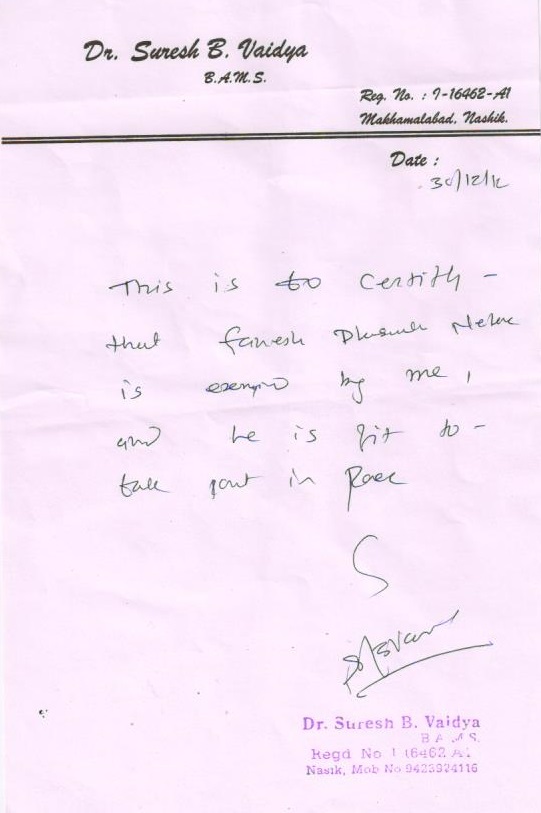 Dr. Suresh B. Vaidya
B.A.M.S.
Reg. No. : I-16462-A1
Makhamalabad, Nashik.
Date :
30/12/12
This is to certify -
that
is by me,
and he is fit to -
take part in Race
Dr. Suresh B. Vaidya
B A M S.
Regd No I 16462 A1
Nasik, Mob No 9423924116